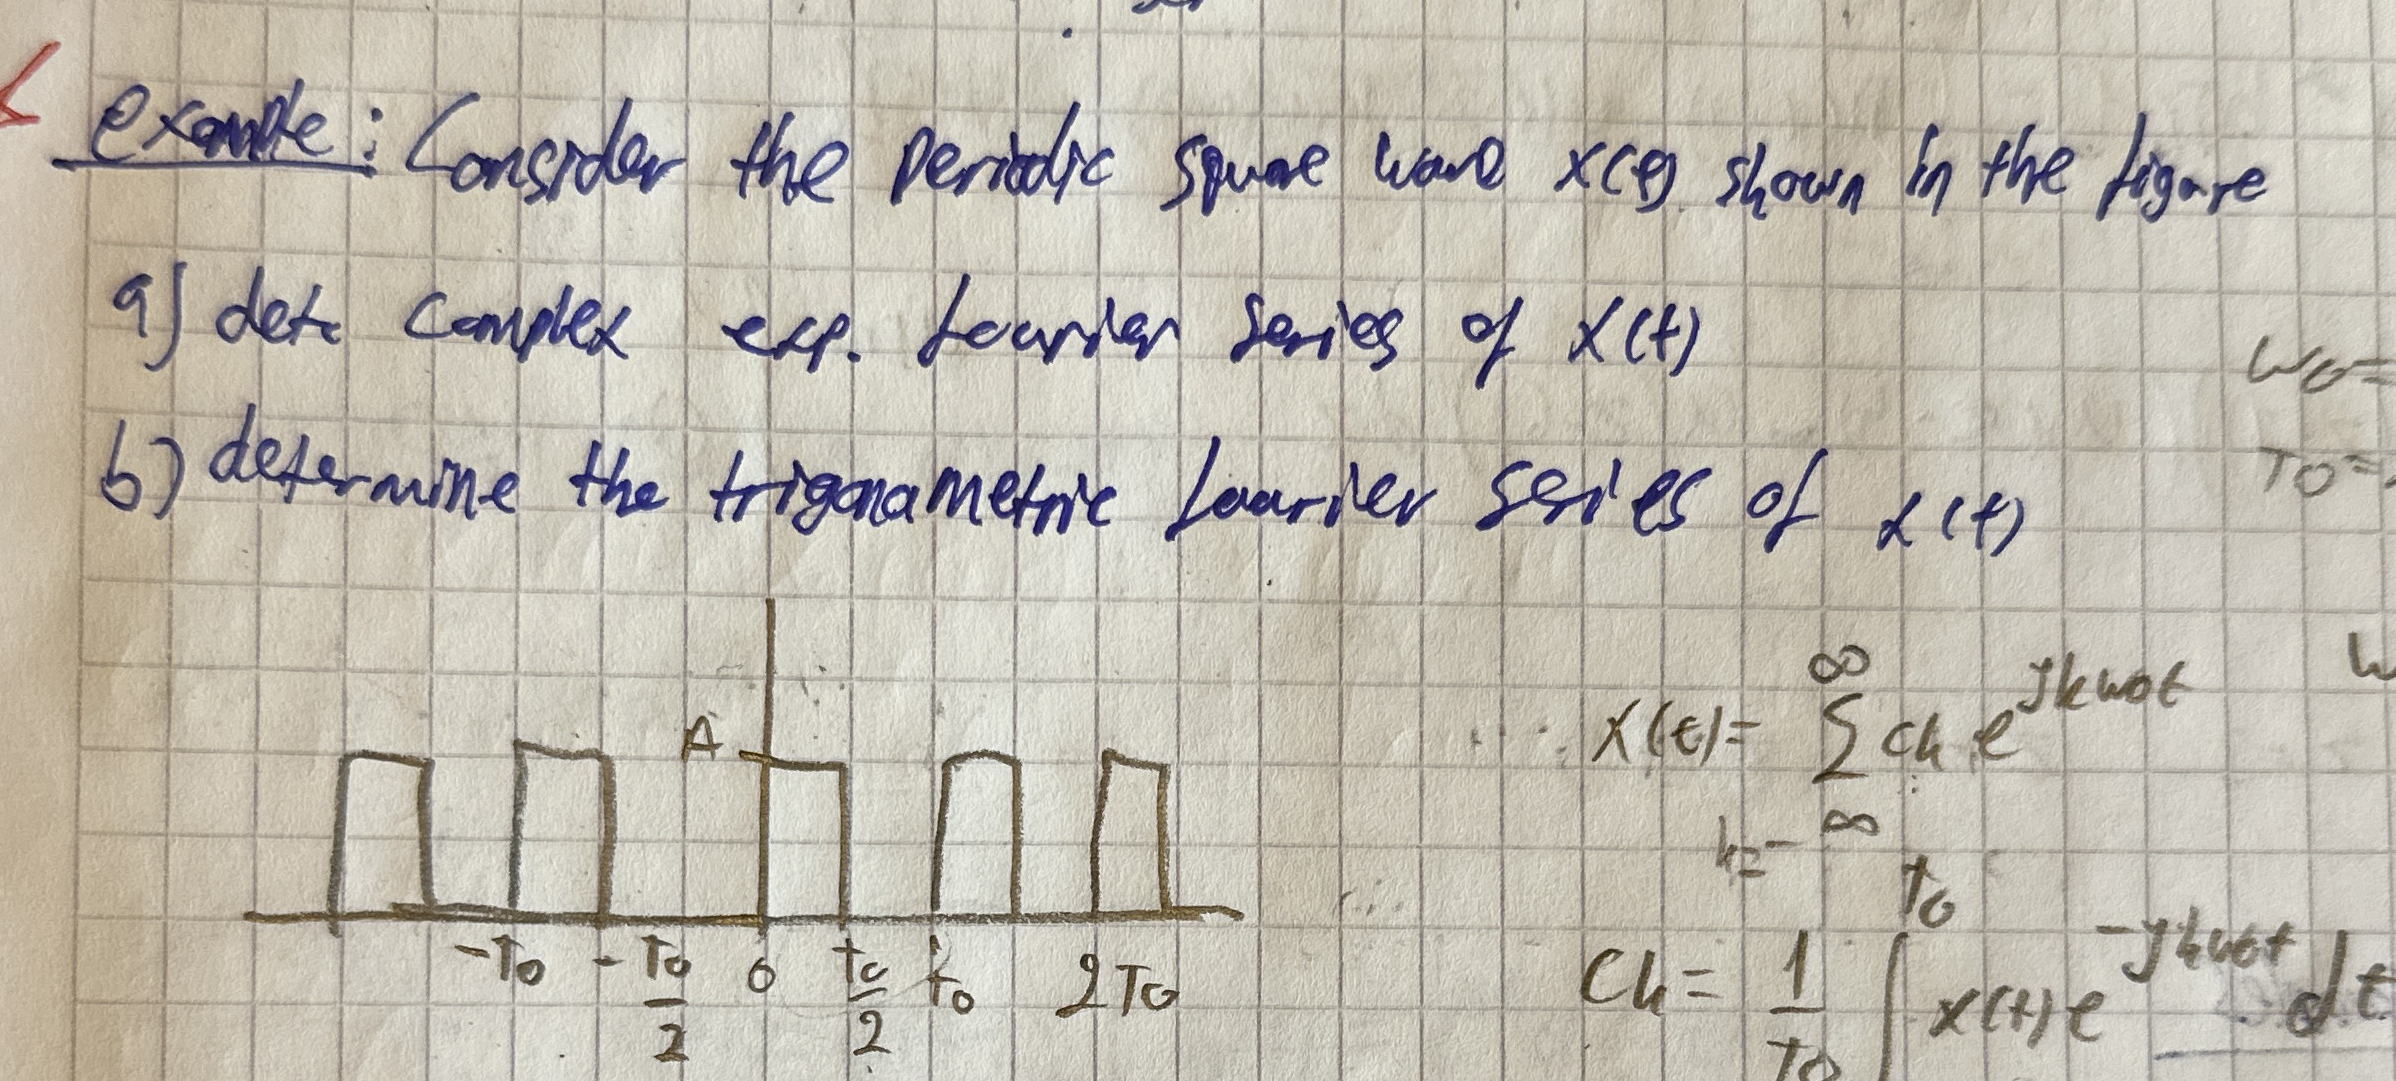 example: Consider the periodic square wave x(t) shown in the figure
a) dete complex exp. fourier series of x(t)
b) determine the trigonametric fourier series of x(t)
w0=
T0=
A
x(t)= ∞ Σ k=-∞ ck e^jkw0t
-T0 -T0/2 0 t0/2 t0 2T0
Ck= 1/T0 ∫ T0 x(t) e^-jkw0t dt